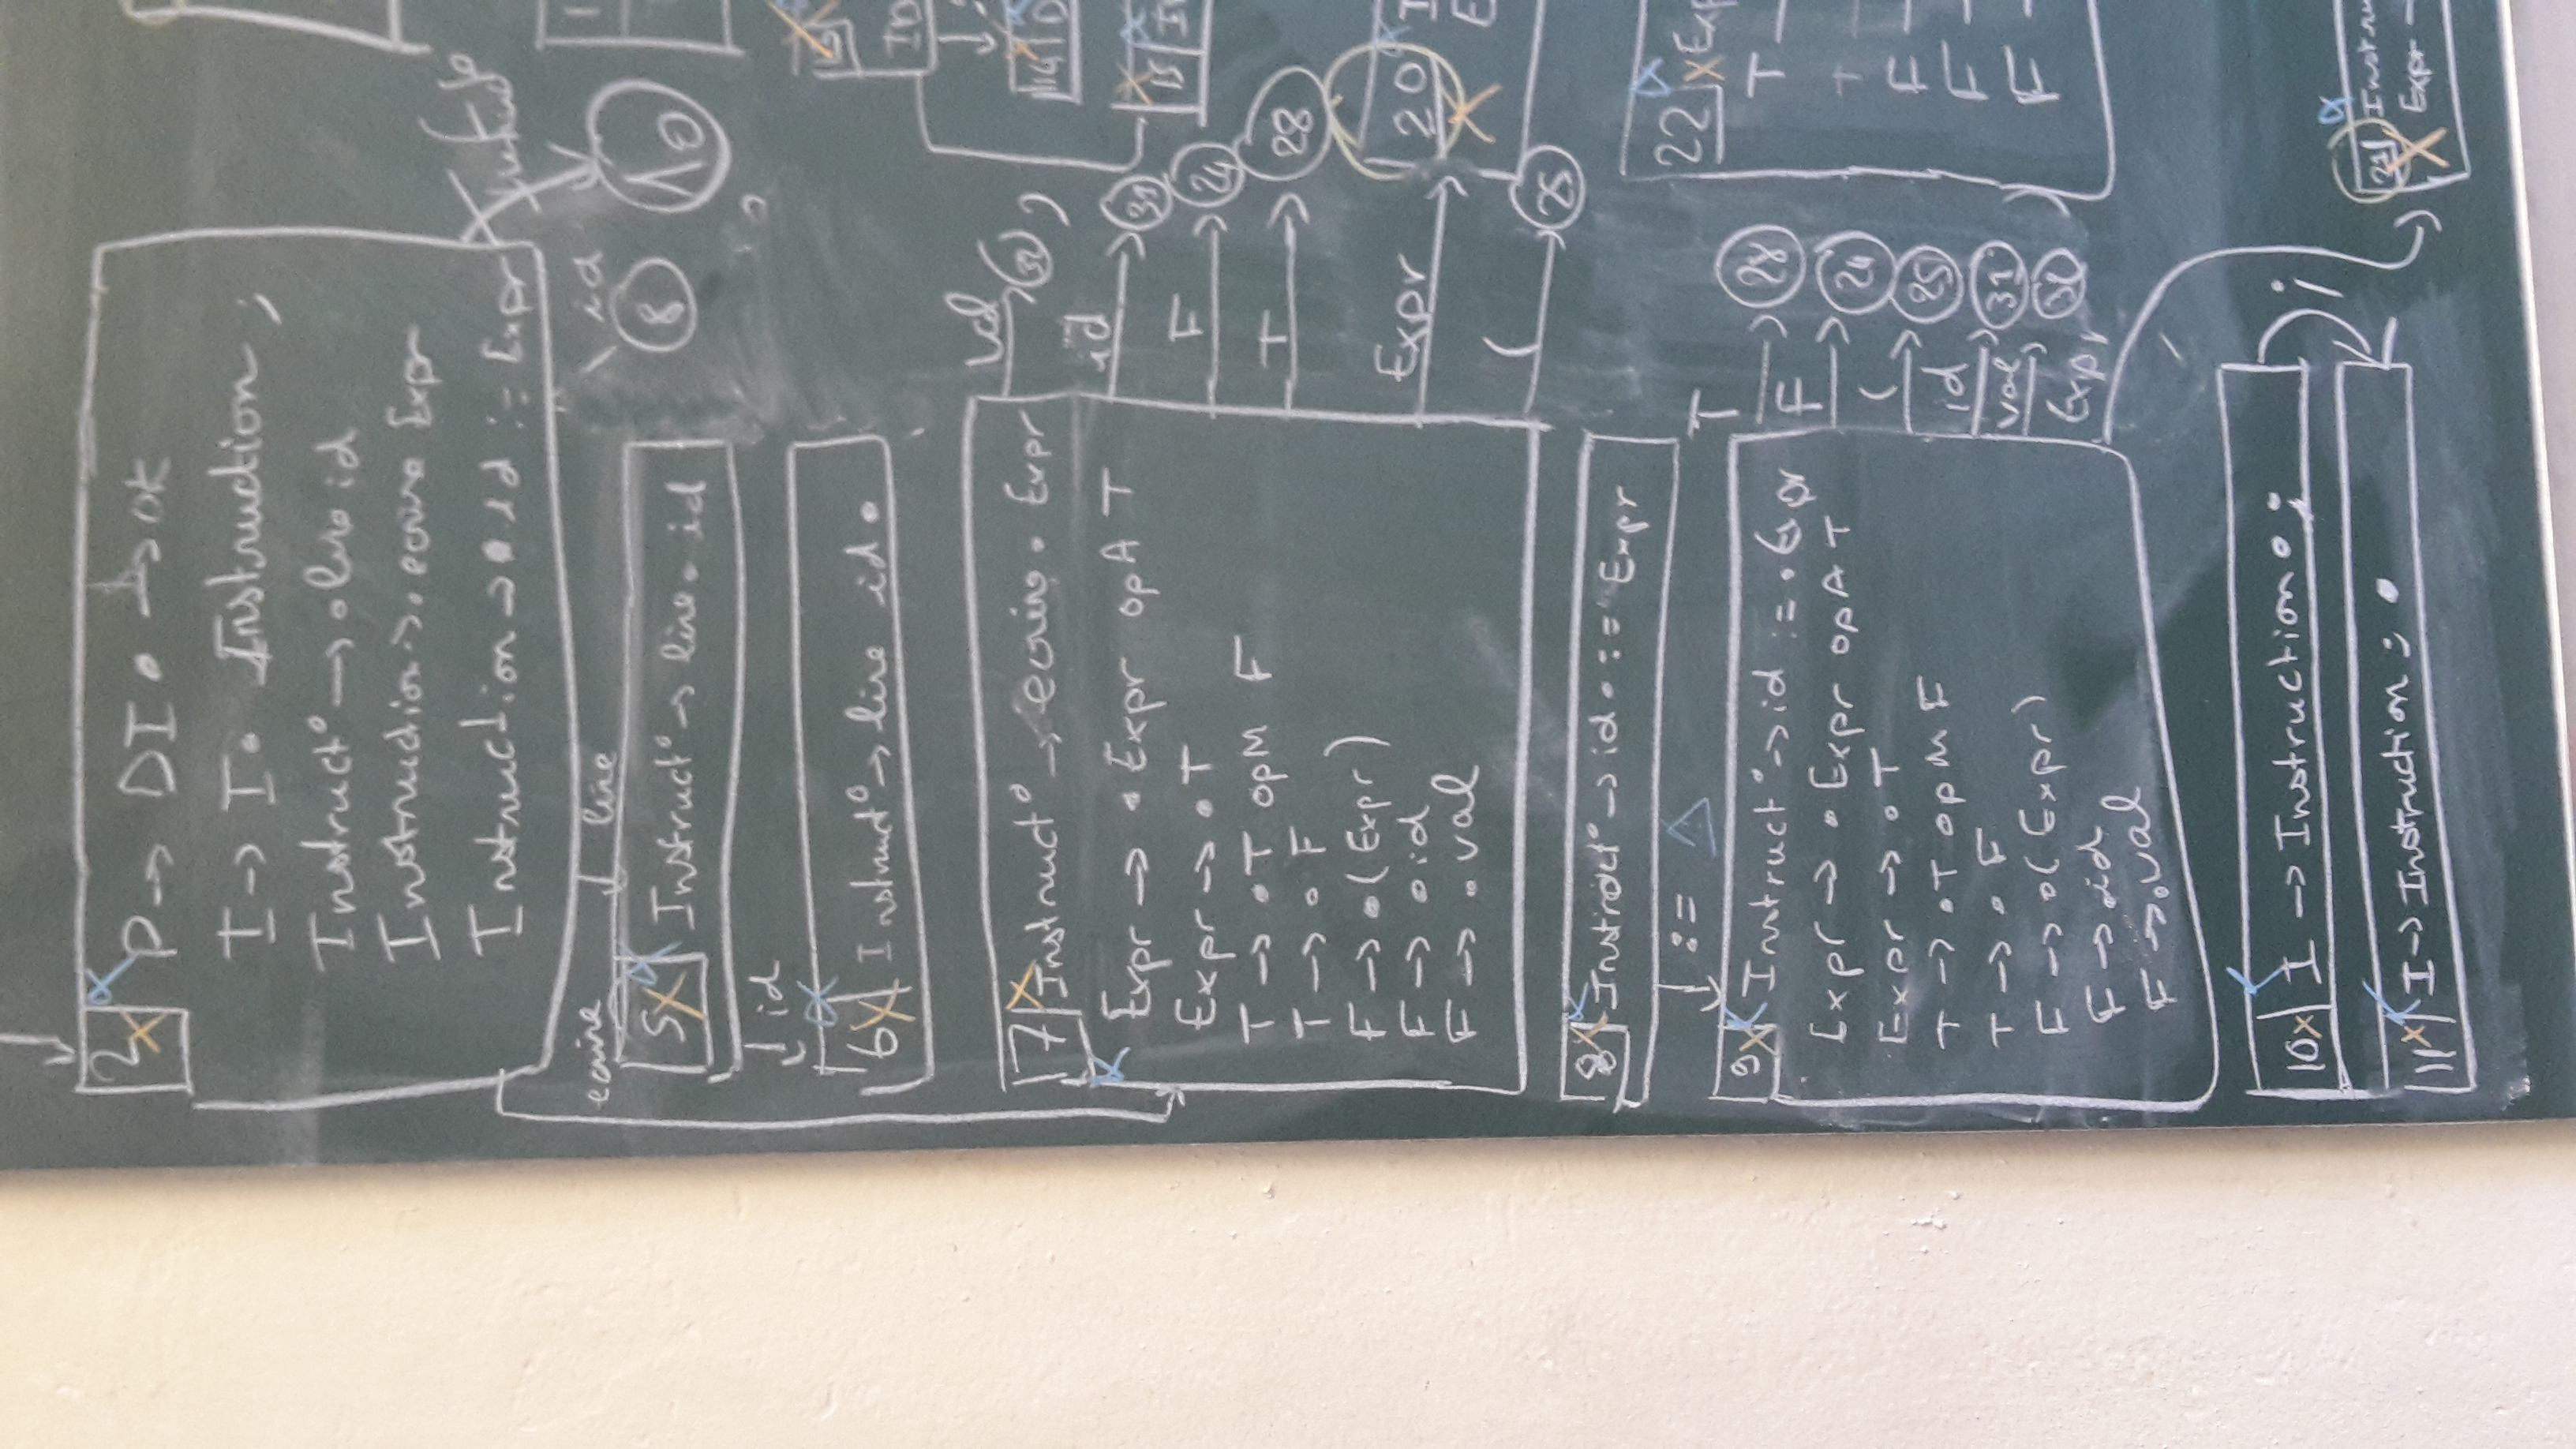 2 P → DI • → OK
I → I • Instruction ;
Instruct° → • lire id
Instruction → • ecrire Expr
Instruction → • id := Expr
ecrire
lire
id
8
10
5 Instruct° → lire • id
id
6 Instruct° → lire id •
7 Instruct° → ecrire • Expr
Expr → • Expr opA T
Expr → • T
T → • T opM F
T → • F
F → • (Expr)
F → • id
F → • val
val
32 ,
id
31
F
24
T
28
Expr
20
(
25
14
15
8 Instruct° → id • := Expr
:=
9 Instruct° → id := • Expr
Expr → • Expr opA T
Expr → • T
T → • T opM F
T → • F
F → • (Expr)
F → • id
F → • val
T
28
F
24
(
25
id
31
val
32
Expr
22 Exp
T
T
F
F
F
10 I → Instruction • ;
;
11 I → Instruction ; •
21 Instru
Expr